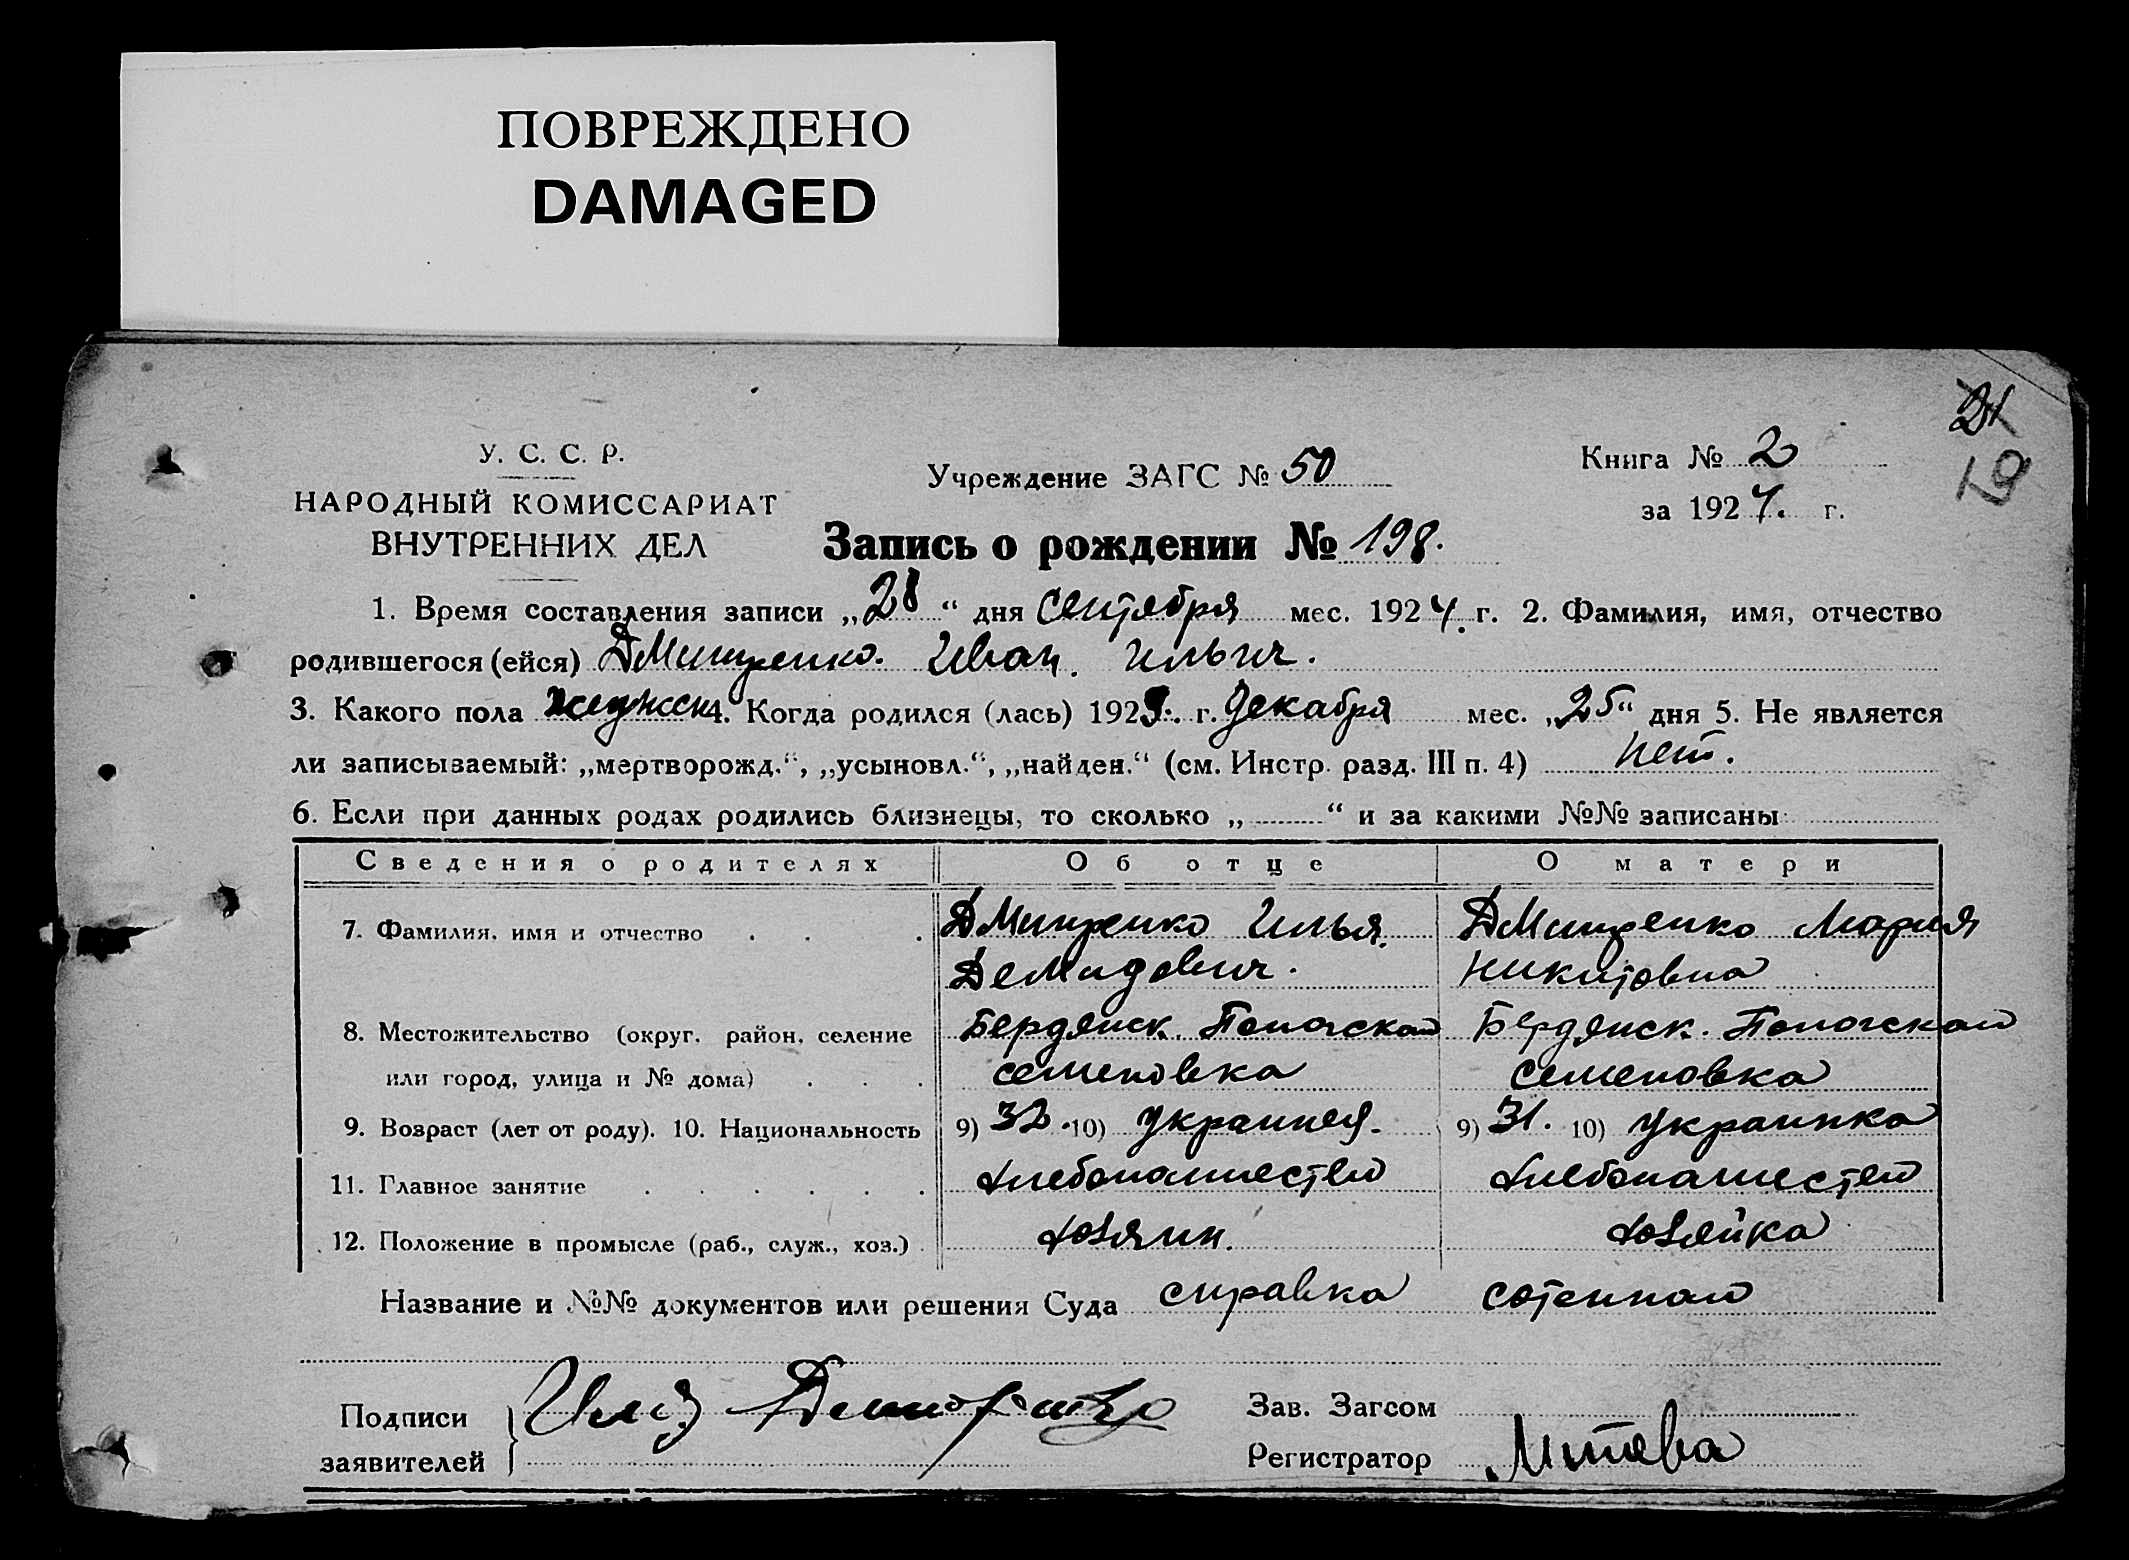 ПОВРЕЖДЕНО
DAMAGED
21
19
У. С. С. Р.
НАРОДНЫЙ КОМИССАРИАТ
ВНУТРЕННИХ ДЕЛ
Учреждение ЗАГС № 50
Книга № 2
за 1924. г.
Запись о рождении № 198.
1. Время составления записи „28“ дня Сентября мес. 1924. г. 2. Фамилия, имя, отчество
родившегося (ейся) Дмитренко. Иван. Ильич.
3. Какого пола 4. Когда родился (лась) 192 г. Декабря мес. „25“ дня 5. Не является
ли записываемый: „мертворожд.“, „усыновл.“, „найден.“ (см. Инстр. разд. III п. 4) нет.
6. Если при данных родах родились близнецы, то сколько „ “ и за какими №№ записаны
Сведения о родителях Об отце О матери
7. Фамилия, имя и отчество . . . Дмитренко Илья. Дмитренко Мария
Демидович. Никитовна
8. Местожительство (округ, район, селение Бердянск. Пологский Бердянск. Пологский
или город, улица и № дома) . . . семеновка семеновка
9. Возраст (лет от роду). 10. Национальность 9) 32. 10) Украинец. 9) 31. 10) Украинка
11. Главное занятие . . . . . . хлебопашество хлебопашество
12. Положение в промысле (раб., служ., хоз.) . хозяин. хозяйка
Название и №№ документов или решения Суда справка сотенного
Подписи
заявителей
Илья
Зав. Загсом
Регистратор